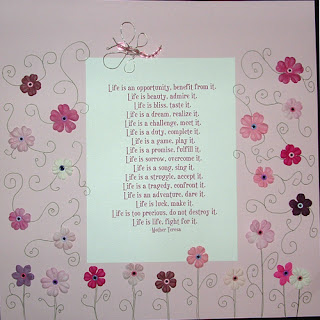 Life is an opportunity, benefit from it.
Life is beauty, admire it.
Life is bliss, taste it.
Life is a dream, realize it.
Life is a challenge, meet it.
Life is a duty, complete it.
Life is a game, play it.
Life is a promise, fulfill it.
Life is sorrow, overcome it.
Life is a song, sing it.
Life is a struggle, accept it.
Life is a tragedy, confront it.
Life is an adventure, dare it.
Life is luck, make it.
Life is too precious, do not destroy it.
Life is life, fight for it.
Mother Teresa